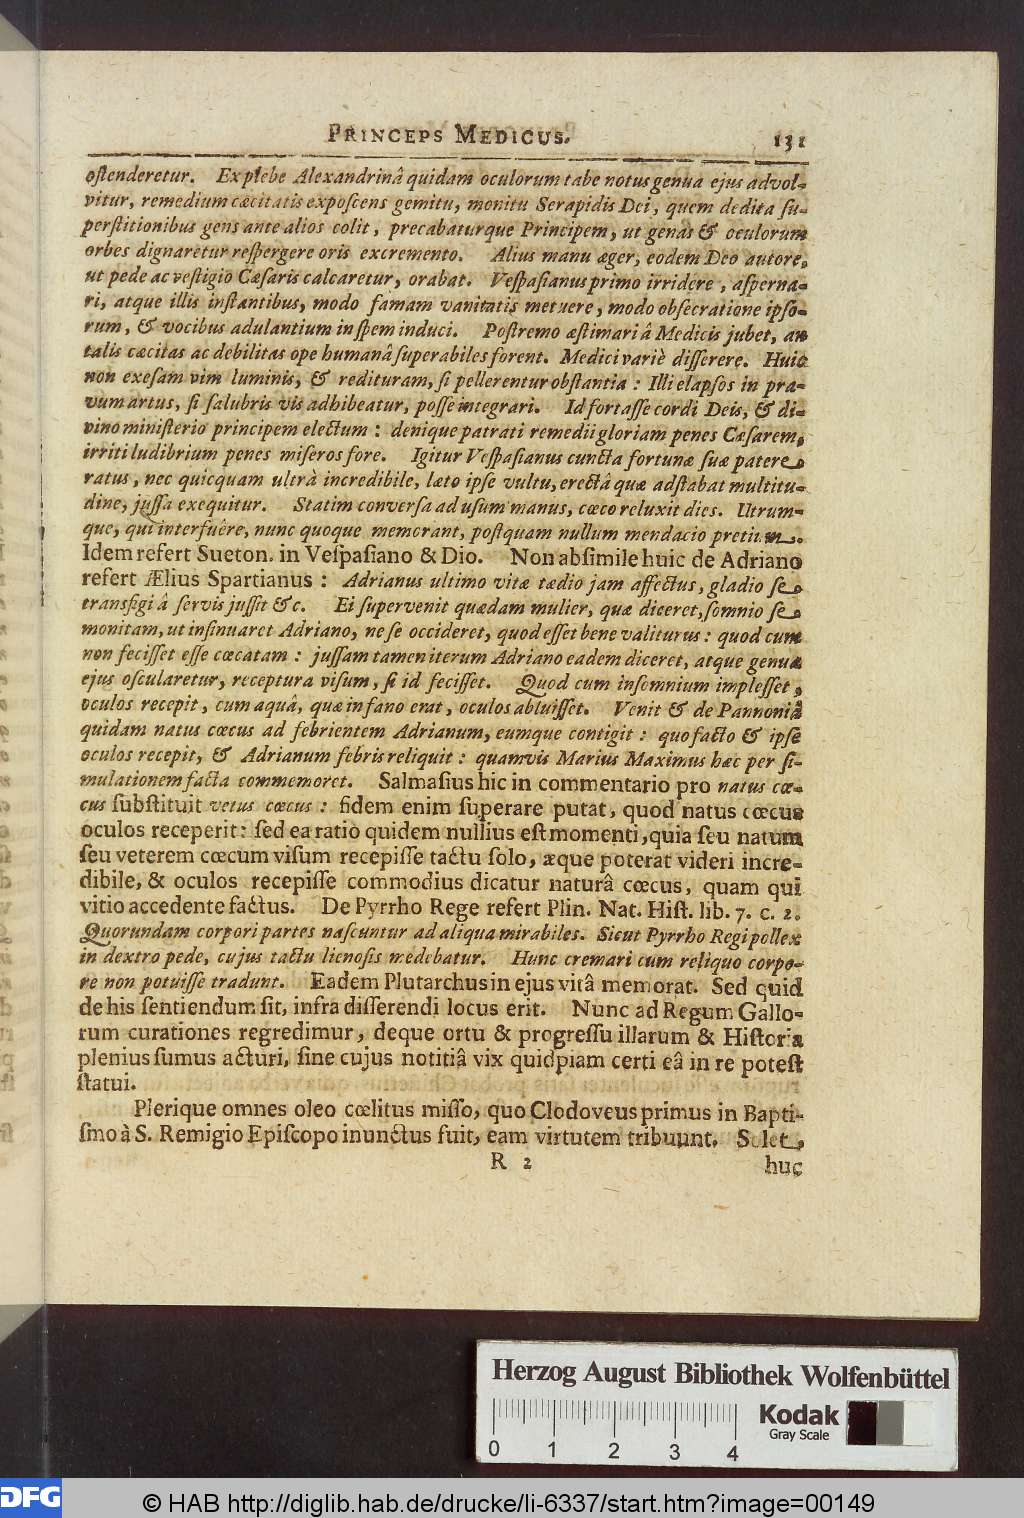 PRINCEPS MEDICUS. 131
oſtenderetur. Ex plebe Alexandrinâ quidam oculorum tabe notus genua ejus advol-
vitur, remedium cæcitatis expoſcens gemitu, monitu Serapidis Dei, quem dedita ſu-
perſtitionibus gens ante alios colit, precabaturque Principem, ut genas & oculorum
orbes dignaretur reſpergere oris excremento. Alius manu æger, eodem Deo autore,
ut pede ac veſtigio Cæſaris calcaretur, orabat. Veſpaſianus primo irridere, aſperna-
ri, atque illis inſtantibus, modo famam vanitatis metuere, modo obſecratione ipſo-
rum, & vocibus adulantium in ſpem induci. Poſtremo æſtimari â Medicis jubet, an
talis cæcitas ac debilitas ope humanâ ſuperabiles forent. Medici variè diſſerere. Huic
non exeſam vim luminis, & redituram, ſi pellerentur obſtantia: Illi elapſos in pra-
vum artus, ſi ſalubris vis adhibeatur, poſſe integrari. Id fortaſſe cordi Deis, & di-
vino miniſterio principem electum: denique patrati remedii gloriam penes Cæſarem,
irriti ludibrium penes miſeros fore. Igitur Veſpaſianus cuncta fortunæ ſuæ patere
ratus, nec quicquam ultrà incredibile, læto ipſe vultu, erectâ quæ adſtabat multitu-
dine, juſſa exequitur. Statim converſa ad uſum manus, cæco reluxit dies. Utrum-
que, qui interfuêre, nunc quoque memorant, poſtquam nullum mendacio pretium.
Idem refert Sueton. in Veſpaſiano & Dio. Non abſimile huic de Adriano
refert Ælius Spartianus: Adrianus ultimo vitæ tædio jam affectus, gladio ſe
transfigi â ſervis juſſit &c. Ei ſupervenit quædam mulier, quæ diceret, ſomnio ſe
monitam, ut inſinuaret Adriano, ne ſe occideret, quod eſſet bene valiturus: quod cum
non feciſſet eſſe cœcatam: juſſam tamen iterum Adriano eadem diceret, atque genua
ejus oſcularetur, receptura viſum, ſi id feciſſet. Quod cum inſomnium impleſſet,
oculos recepit, cum aquâ, quæ in fano erat, oculos abluiſſet. Venit & de Pannoniâ
quidam natus cœcus ad febrientem Adrianum, eumque contigit: quo facto & ipſe
oculos recepit, & Adrianum febris reliquit: quamvis Marius Maximus hæc per ſi-
mulationem facta commemoret. Salmaſius hic in commentario pro natus cœ-
cus ſubſtituit vetus cœcus: fidem enim ſuperare putat, quod natus cœcus
oculos receperit: ſed ea ratio quidem nullius eſt momenti, quia ſeu natum
ſeu veterem cœcum viſum recepiſſe tactu ſolo, æque poterat videri incre-
dibile, & oculos recepiſſe commodius dicatur naturâ cœcus, quam qui
vitio accedente factus. De Pyrrho Rege refert Plin. Nat. Hiſt. lib. 7. c. 2.
Quorundam corpori partes naſcuntur ad aliqua mirabiles. Sicut Pyrrho Regi pollex
in dextro pede, cujus tactu lienoſis medebatur. Hunc cremari cum reliquo corpo-
re non potuiſſe tradunt. Eadem Plutarchus in ejus vitâ memorat. Sed quid
de his ſentiendum ſit, infra diſſerendi locus erit. Nunc ad Regum Gallo-
rum curationes regredimur, deque ortu & progreſſu illarum & Hiſtoria
plenius ſumus acturi, ſine cujus notitiâ vix quidpiam certi eâ in re poteſt
ſtatui.
Plerique omnes oleo cœlitus miſſo, quo Clodoveus primus in Bapti-
ſmo à S. Remigio Epiſcopo inunctus fuit, eam virtutem tribuunt. Solet
R 2
huc
Herzog August Bibliothek Wolfenbüttel
0 1 2 3 4
Kodak
Gray Scale
DFG
© HAB http://diglib.hab.de/drucke/li-6337/start.htm?image=00149